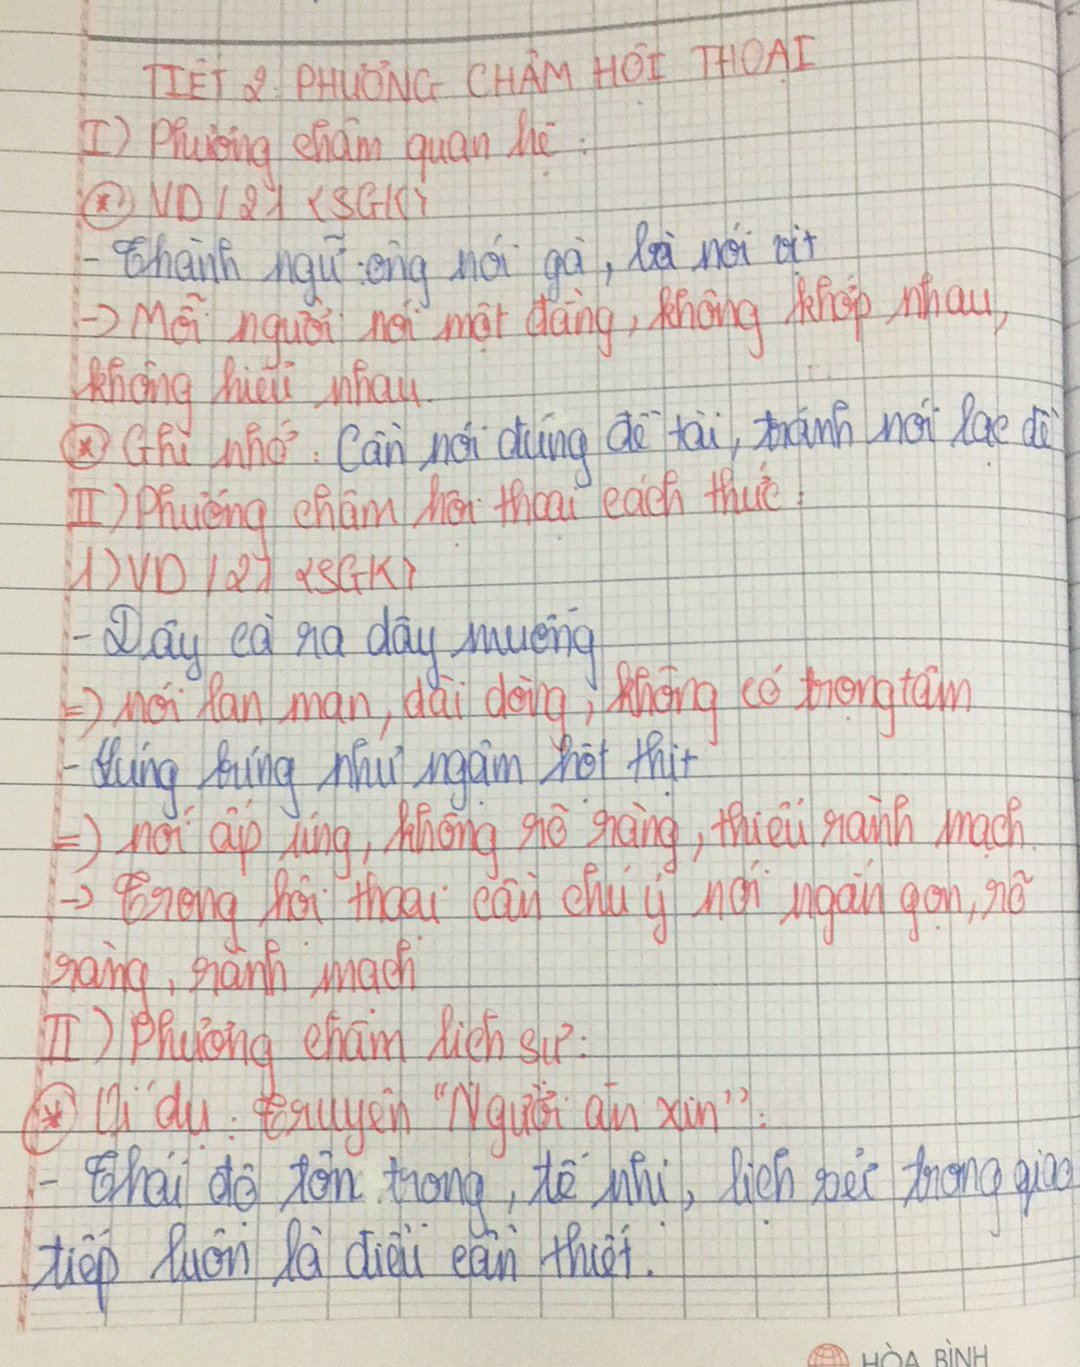 TIẾT 2. PHƯƠNG CHÂM HỘI THOẠI
I) Phương châm quan hệ:
* VD /21 <SGK>
- Thành ngữ: ông nói gà, bà nói vịt
-> Mỗi người nói một đằng, không khớp nhau,
không hiểu nhau.
* Ghi nhớ: Cần nói đúng đề tài, tránh nói lạc đề
II) Phương châm hội thoại cách thức:
1) VD /21 <SGK>
- Dây cà ra dây muống
=> nói lan man, dài dòng, không có trọng tâm
- lúng búng như ngậm hột thịt
=> nói ấp úng, không rõ ràng, thiếu rành mạch.
-> Trong hội thoại cần chú ý nói ngắn gọn, rõ
ràng, rành mạch
II) Phương châm lịch sự:
* Ví dụ: truyện "Người ăn xin":
- Thái độ tôn trọng, tế nhị, lịch sự trong giao
tiếp luôn là điều cần thiết.
HÒA BÌNH